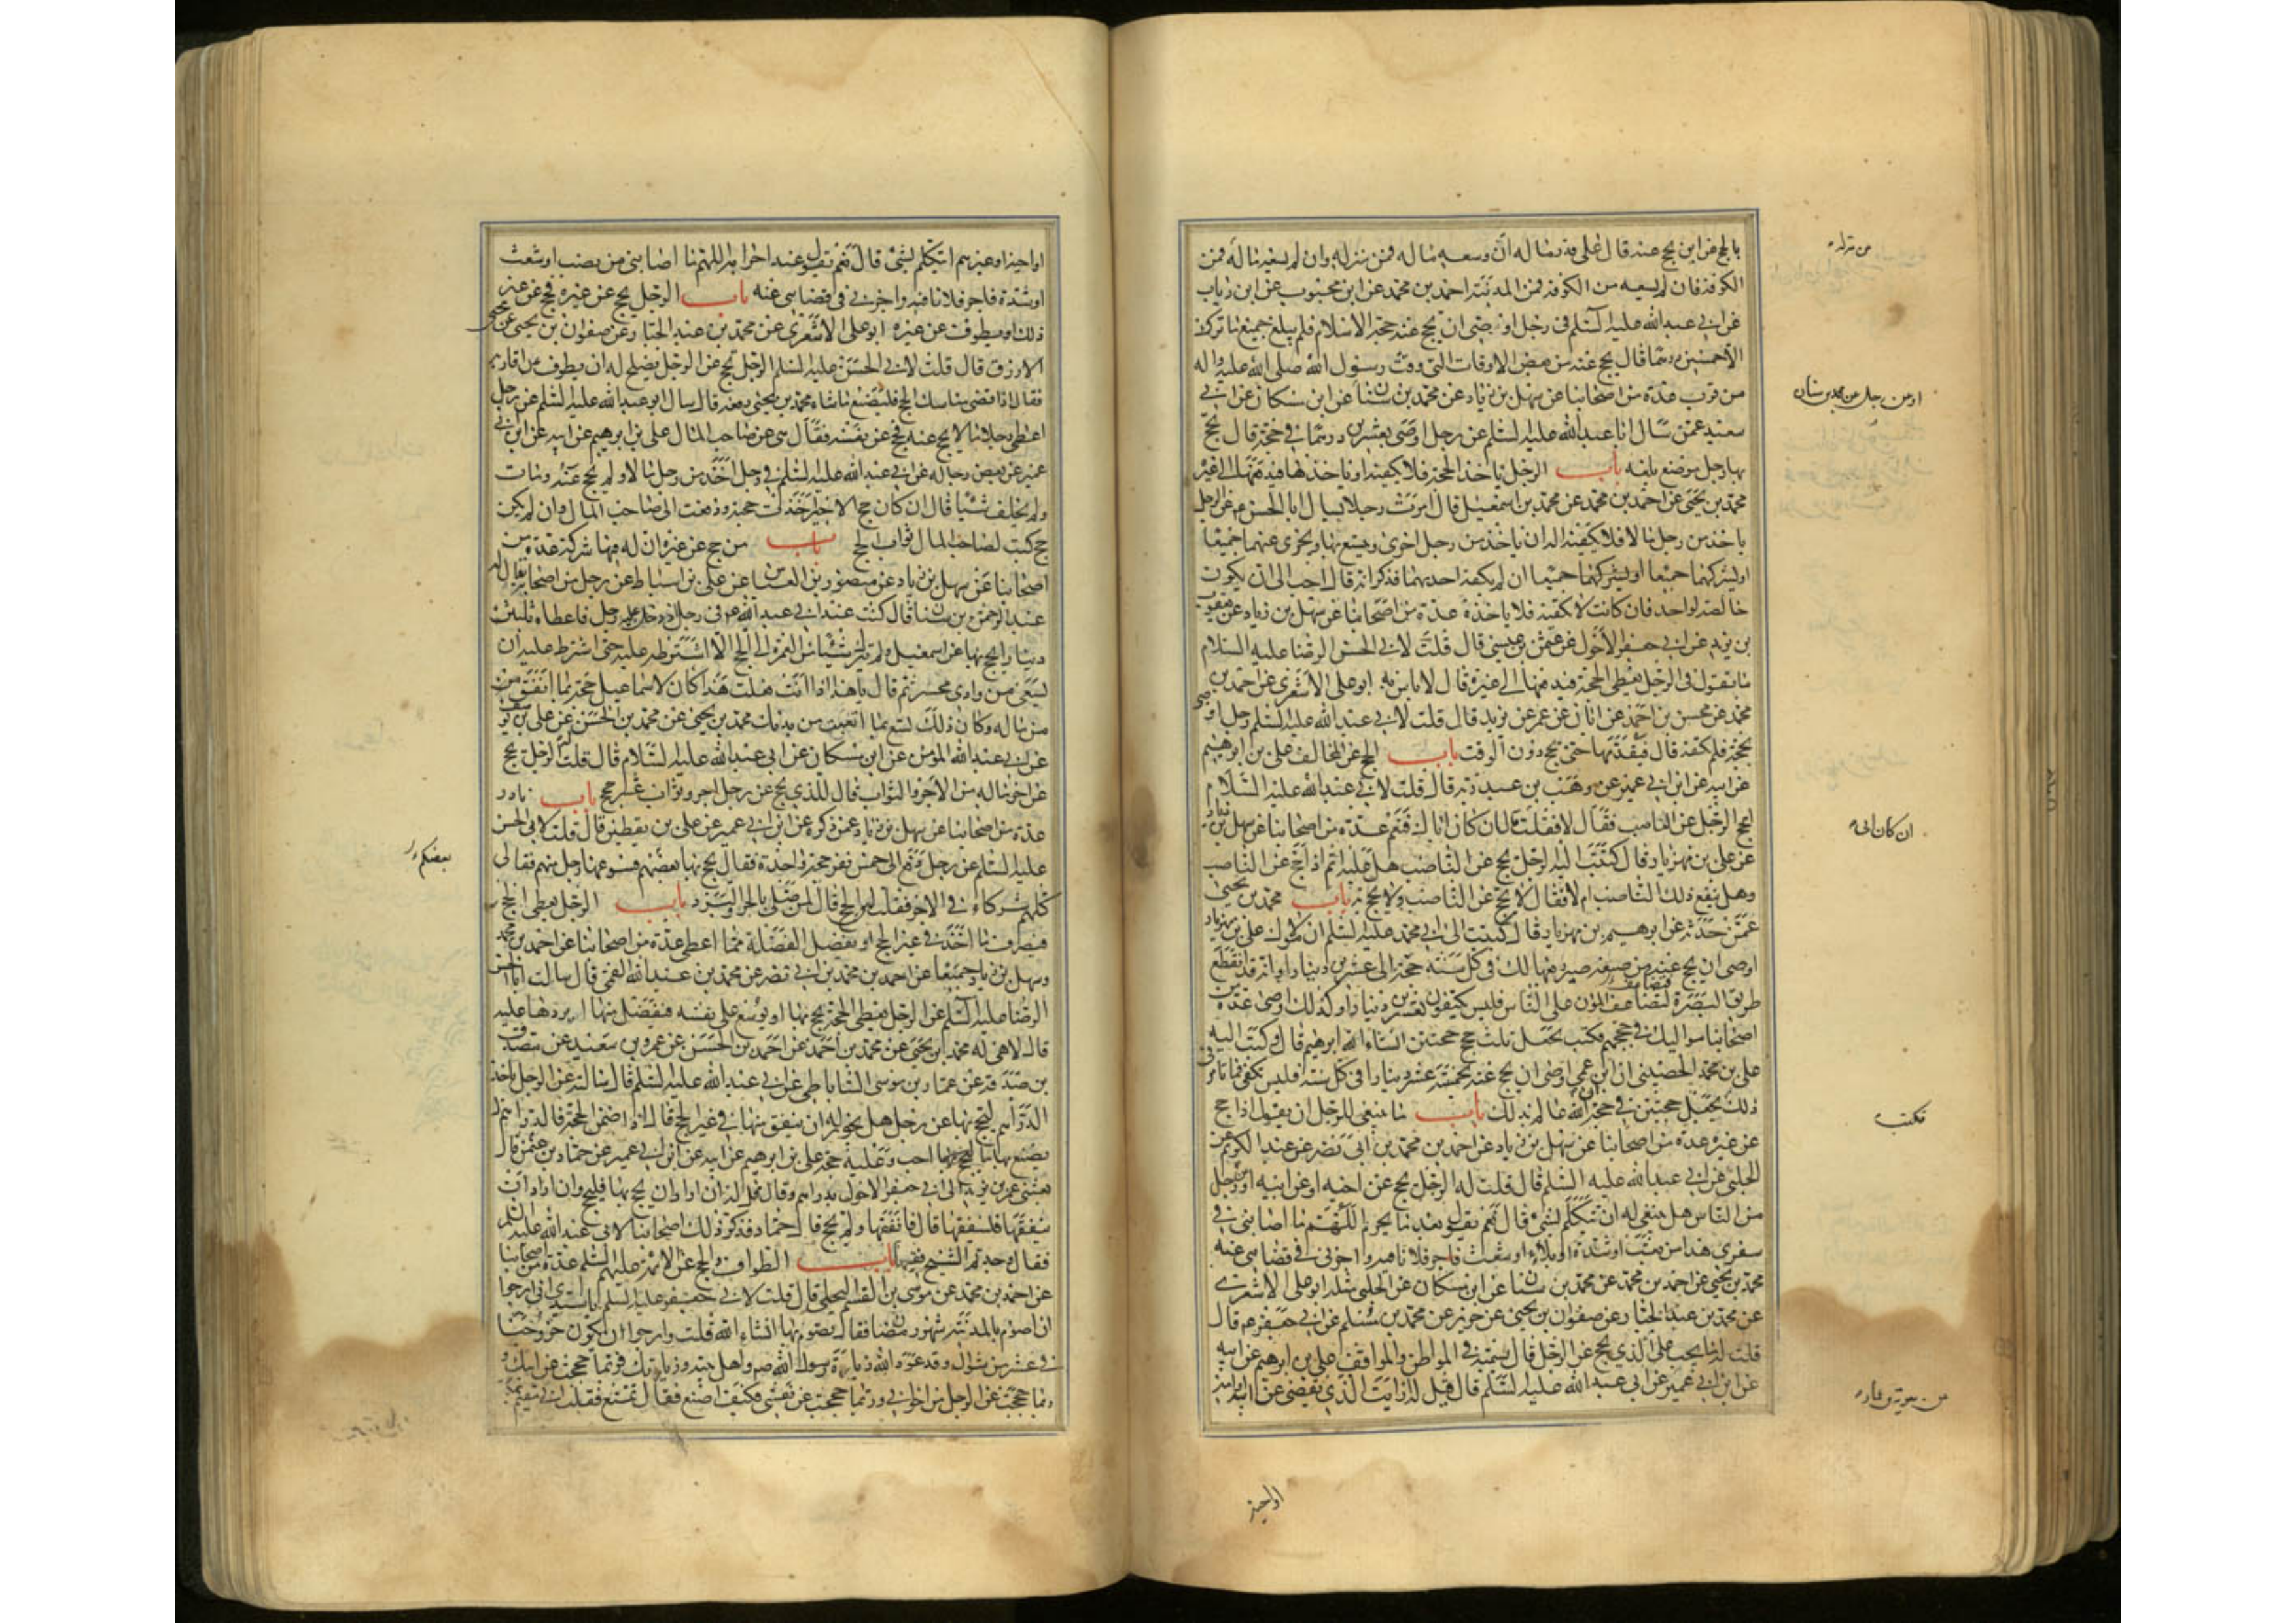 بالحج عن ابن يحج عنه قال على قدر ماله ان وسعه ماله فمن منزله وان لم يسعه ماله فمن
الكوفة فان لم يسعه من الكوفة فمن المدينة احمد بن محمد عن ابن محبوب عن ابن رياب
عن ابي عبد الله عليه السلم في رجل اوصى ان يحج عنه حجة الاسلام فلم يبلغ جميع ما ترك
الا خمسين درهما قال يحج عنه من بعض الاوقات التي وقت رسول الله صلى الله عليه واله
من قرب عدة من اصحابنا عن سهل بن زياد عن محمد بن سنان عن ابن مسكان عن ابي
سعيد عمن سال ابا عبد الله عليه السلم عن رجل اوصى بعشرين درهما في حجة قال يحج
بها رجل من موضع بلغه باب الرجل ياخذ الحجة فلا تكفيه او ياخذها فيدفعها الى غيره
محمد بن يحيى عن احمد بن محمد عن محمد بن اسمعيل قال امرت رجلا يسال ابا الحسن ع عن الرجل
ياخذ من رجل مالا فلا يكفيه اله ان ياخذ من رجل اخرى ويتسع بها ويجزى عنهما جميعا
او يشركهما جميعا ان لم يكفه احديهما فذكر انه قال احب الى ان يكون
خالصة لواحد فان كانت لا تكفيه فلا ياخذه عدة من اصحابنا عن سهل بن زياد عن يعقوب
بن يزيد عن ابي جعفر الاحول عن عثمن بن عيسى قال قلت لابي الحسن الرضا عليه السلام
ما تقول في الرجل يعطى الحجة فيدفعها الى غيره قال لا باس به ابو على الاشعرى عن احمد بن
محمد عن محسن بن احمد عن ابان عن عمر عن يزيد قال قلت لابي عبد الله عليه السلم رجل اوصى
بحجة فلم تكفه قال فيقدمها حتى يحج دون الوقت باب الحج عن المخالف على بن ابرهيم
عن ابيه عن ابن ابي عمير عن وهب بن عبد ربه قال قلت لابي عبد الله عليه السلام
ايحج الرجل عن الناصب فقال لا فقلت فان كان ابى قال فنعم عدة من اصحابنا عن سهل بن زياد
عن على بن مهزيار قال كتبت اليه الرجل يحج عن الناصب هل عليه اثم اذا حج عن الناصب
وهل ينفع ذلك الناصب ام لا فقال لا يحج عن الناصب ولا يحج به باب محمد بن يحيى
عمن حدثه عن ابرهيم بن مهزيار قال كتبت الى ابي محمد عليه السلم ان مولاك على بن مهزيار
اوصى ان يحج عنه من ضيعة صير ربعها لك في كل سنة حجة الى عشرين دينارا وانه قد انقطع
طريق البصرة فتضاعف المؤن على الناس فليس يكتفون بعشرين دينارا وكذلك اوصى عدة من
اصحابنا مواليك في حججهم فكتب يجعل ثلث حجج حجتين انشاء الله ابرهيم قال وكتب اليه
على بن محمد الحصيني ان ابن عمى اوصى ان يحج عنه بخمسة عشر دينارا في كل سنة فليس تكفى فما تامرني
ذلك يجعل حجتين في حجة ان الله عالم بذلك باب ما ينبغي للرجل ان يقول اذا حج
عن غيره عدة من اصحابنا عن سهل بن زياد عن احمد بن محمد بن ابي نصر عن عبد الكريم عن
الحلبي عن ابي عبد الله عليه السلم قال قلت له الرجل يحج عن اخيه او عن ابيه او عن رجل
من الناس هل ينبغي له ان يتكلم بشئ قال نعم يقول بعد ما يحرم اللهم ما اصابني في
سفري هذا من تعب او شدة او بلاء او شعث فاجر فلانا فيه واجرني في قضائي عنه
محمد بن يحيى عن احمد بن محمد عن محمد بن سنان عن ابن مسكان عن الحلبي مثله ابو على الاشعرى
عن محمد بن عبد الجبار عن صفوان بن يحيى عن حريز عن محمد بن مسلم عن ابي جعفر ع قال
قلت له ما يجب على الذي يحج عن الرجل قال يسميه في المواطن والمواقف على بن ابرهيم عن ابيه
عن ابن ابي عمير عن ابي عبد الله عليه السلم قال قيل له ارايت الذي يقضى عن ابيه او امه
من منزله
او من رجل عن محمد بن سنان
ان كان ابى
فكتب
او اخيه
او اخيه او غيرهم ايتكلم بشئ قال نعم يقول عند احرامه اللهم ما اصابني من نصب او شعث
او شدة فاجر فلانا فيه واجرني في قضائي عنه باب الرجل يحج عن غيره فحج عن غير
ذلك او يطوف عن غيره ابو على الاشعرى عن محمد بن عبد الجبار عن صفوان بن يحيى عن يحيى
الازرق قال قلت لابي الحسن عليه السلم الرجل يحج عن الرجل يصلح له ان يطوف عن اقاربه
فقال اذا قضى مناسك الحج فليصنع ما شاء محمد بن يحيى رفعه قال سال ابو عبد الله عليه السلم عن رجل
اعطى رجلا مالا يحج عنه فحج عن نفسه فقال هى عن صاحب المال على بن ابرهيم عن ابيه عن ابن ابي
عمير عن بعض رجاله عن ابي عبد الله عليه السلم في رجل اخذ من رجل مالا ولم يحج عنه ومات
ولم يخلف شيئا قال ان كان حج الاجير اخذت حجته ودفعت الى صاحب المال وان لم يكن
حج كتب لصاحب المال ثواب الحج باب من حج عن غيره ان له فيها شركة عدة من
اصحابنا عن سهل بن زياد عن منصور بن العباس عن على بن اسباط عن رجل من اصحابنا يقال له
عبد الرحمن بن سنان قال كنت عند ابي عبد الله ع اذ دخل عليه رجل فاعطاه ثلثين
دينارا يحج بها عن اسمعيل ولم يترك شيئا من العمرة الى الحج الا اشترطه عليه حتى اشترط عليه ان
يسعى من وادي محسر ثم قال يا هذا اذا انت فعلت هذا كان لاسماعيل حجة بما انفق من
من ماله وكان لك تسع بما اتعبت من بدنك محمد بن يحيى عن محمد بن الحسن عن على بن يوسف
عن ابي عبد الله المؤمن عن ابن مسكان عن ابي عبد الله عليه السلام قال قلت له الرجل يحج
عن اخر ماله من الاجر والثواب قال للذي يحج عن رجل اجر وثواب عشر حجج باب نادر
عدة من اصحابنا عن سهل بن زياد عمن ذكره عن ابن ابي عمير عن على بن يقطين قال قلت لابي الحسن
عليه السلم عن رجل دفع الى خمس نفر حجة واحدة فقال يحج بها بعضهم فسوغها رجل منهم فقال لى
كلهم شركاء في الاجر فقلت لمن الحج قال لمن صلى بالحر والبرد باب الرجل يعطى الحج
فيصرف ما اخذ في غير الحج او تفضل الفضلة مما اعطى عدة من اصحابنا عن احمد بن محمد
وسهل بن زياد جميعا عن احمد بن محمد بن ابي نصر عن محمد بن عبد الله القمى قال سالت ابا الحسن
الرضا عليه السلم عن الرجل يعطى الحجة يحج بها او يوسع على نفسه فيفضل منها ايردها عليه
قال لا هى له محمد بن يحيى عن محمد بن احمد عن احمد بن الحسن عن عمرو بن سعيد عن مصدق
بن صدقة عن عمار بن موسى الساباطي عن ابي عبد الله عليه السلم قال سالته عن الرجل ياخذ
الدراهم ليحج بها عن رجل هل يجوز له ان ينفق منها في غير الحج قال اذا ضمن الحجة فالدراهم له
يصنع بها ما احب وعليه حجة على بن ابرهيم عن ابيه عن ابن ابي عمير عن حماد بن عثمن قال
بعثني عمر بن يزيد الى ابي جعفر الاحول بدراهم وقال قل له ان اراد ان يحج بها فليحج وان اراد ان
ينفقها فلينفقها قال فانفقها ولم يحج قال حماد فذكر ذلك اصحابنا لابي عبد الله عليه السلم
فقال وجدتم الشيخ فقيها باب الطواف والحج عن الائمة عليهم السلم عدة من اصحابنا
عن احمد بن محمد عن موسى بن القسم البجلي قال قلت لابي جعفر عليه السلم يا سيدي اني ارجوا
ان اصوم بالمدينة شهر رمضان فقال تصوم بها انشاء الله قلت وارجوا ان يكون خروجنا
في عشر من شوال وقد عود الله زيارة رسول الله ص واهل بيته وزيارتك فربما حججت عن ابيك و
ربما حججت عن الرجل من اخواني وربما حججت عن نفسي فكيف اصنع فقال تمتع فقلت اني مقيم بمكة
بعضكم